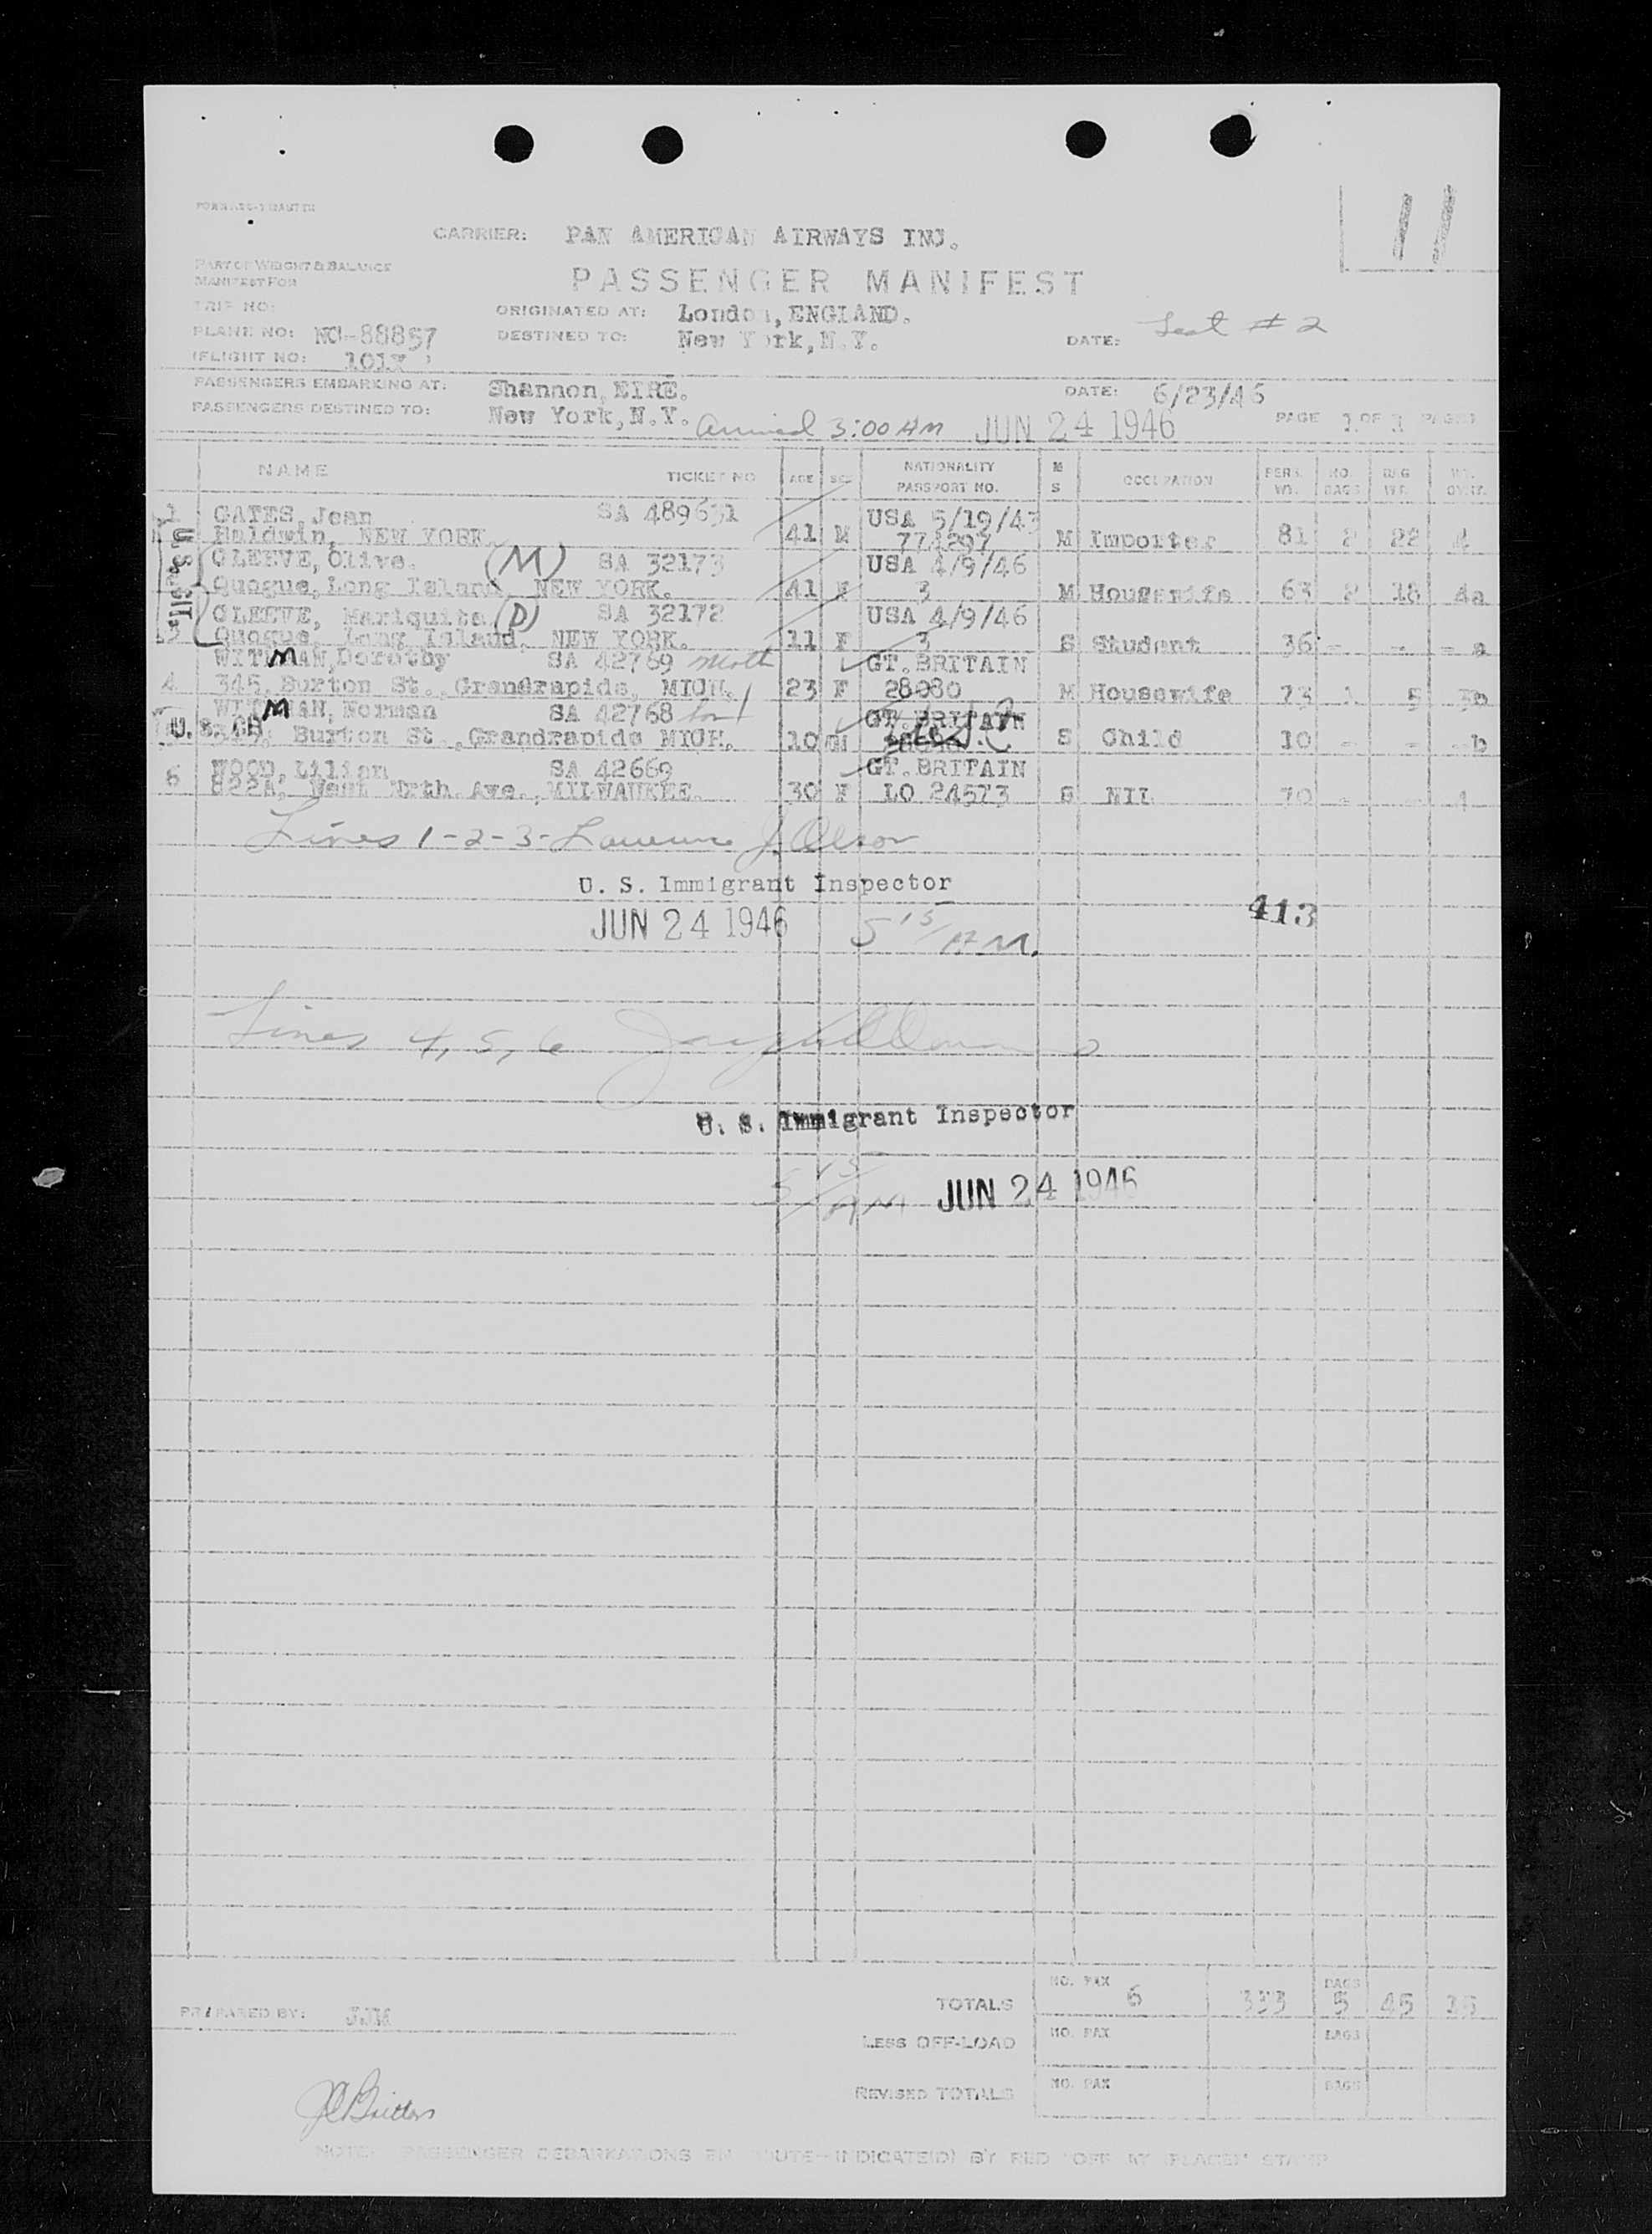 11
CARRIER: PAN AMERICAN AIRWAYS INC.
PART OF WEIGHT & BALANCE
MANIFEST FOR
PASSENGER MANIFEST
TRIP NO:
ORIGINATED AT: London, ENGLAND.
PLANE NO: NC-88857
DESTINED TO: New York, N.Y.
DATE: Sect #2
FLIGHT NO:
PASSENGERS EMBARKING AT: Shannon, EIRE.
DATE: 6/23/46
PASSENGERS DESTINED TO: New York, N.Y. Arrived 3:00 AM JUN 24 1946 PAGE 1 OF 1 PAGES
NAME TICKET NO AGE SEX NATIONALITY PASSPORT NO. M S OCCUPATION PERS. WT. NO. BAGS BAG WT.
1 OATES, Jean SA 489631 USA 5/19/43
Baldwin, NEW YORK. 41 M M Importer 81 2 22 4
U.S. CIT's
CLEEVE, Olive. (M) SA 32173 USA 4/9/46
Quogue, Long Island, NEW YORK. 41 F 3 M Housewife 63 2 18 4a
CLEEVE, Mariquita (D) SA 32172 USA 4/9/46
3 Quogue, Long Island, NEW YORK. 11 F 3 S Student 36 - - - a
WITMAN, Dorothy SA 42769 Moth GT. BRITAIN
4 345, Burton St., Grandrapids, MICH. 23 F 28080 M Housewife 73 1 5 3b
WITMAN, Norman SA 42768 GT. BRITAIN
Burton St., Grandrapids MICH. 10 S Child 10 - - - b
WOOD, Lilian SA 42669 GT. BRITAIN
6 822A, West Nrth. Ave., MILWAUKEE. 30 F LO 24573 S NIL 70 - - 4
Lines 1-2-3- Lawrence J. Olson
U. S. Immigrant Inspector
413
JUN 24 1946 5 15/AM.
Lines 4, 5, 6
U. S. Immigrant Inspector
5 15/AM JUN 24 1946
TOTALS NO. PAX 6 333 BAGS 5 45 15
PREPARED BY: JJM
LESS OFF-LOAD NO. PAX BAGS
REVISED TOTALS NO. PAX BAGS
NOTE: PASSENGER DEBARKATIONS EN ROUTE—INDICATE(D) BY RED "OFF AT (PLACE)" STAMP